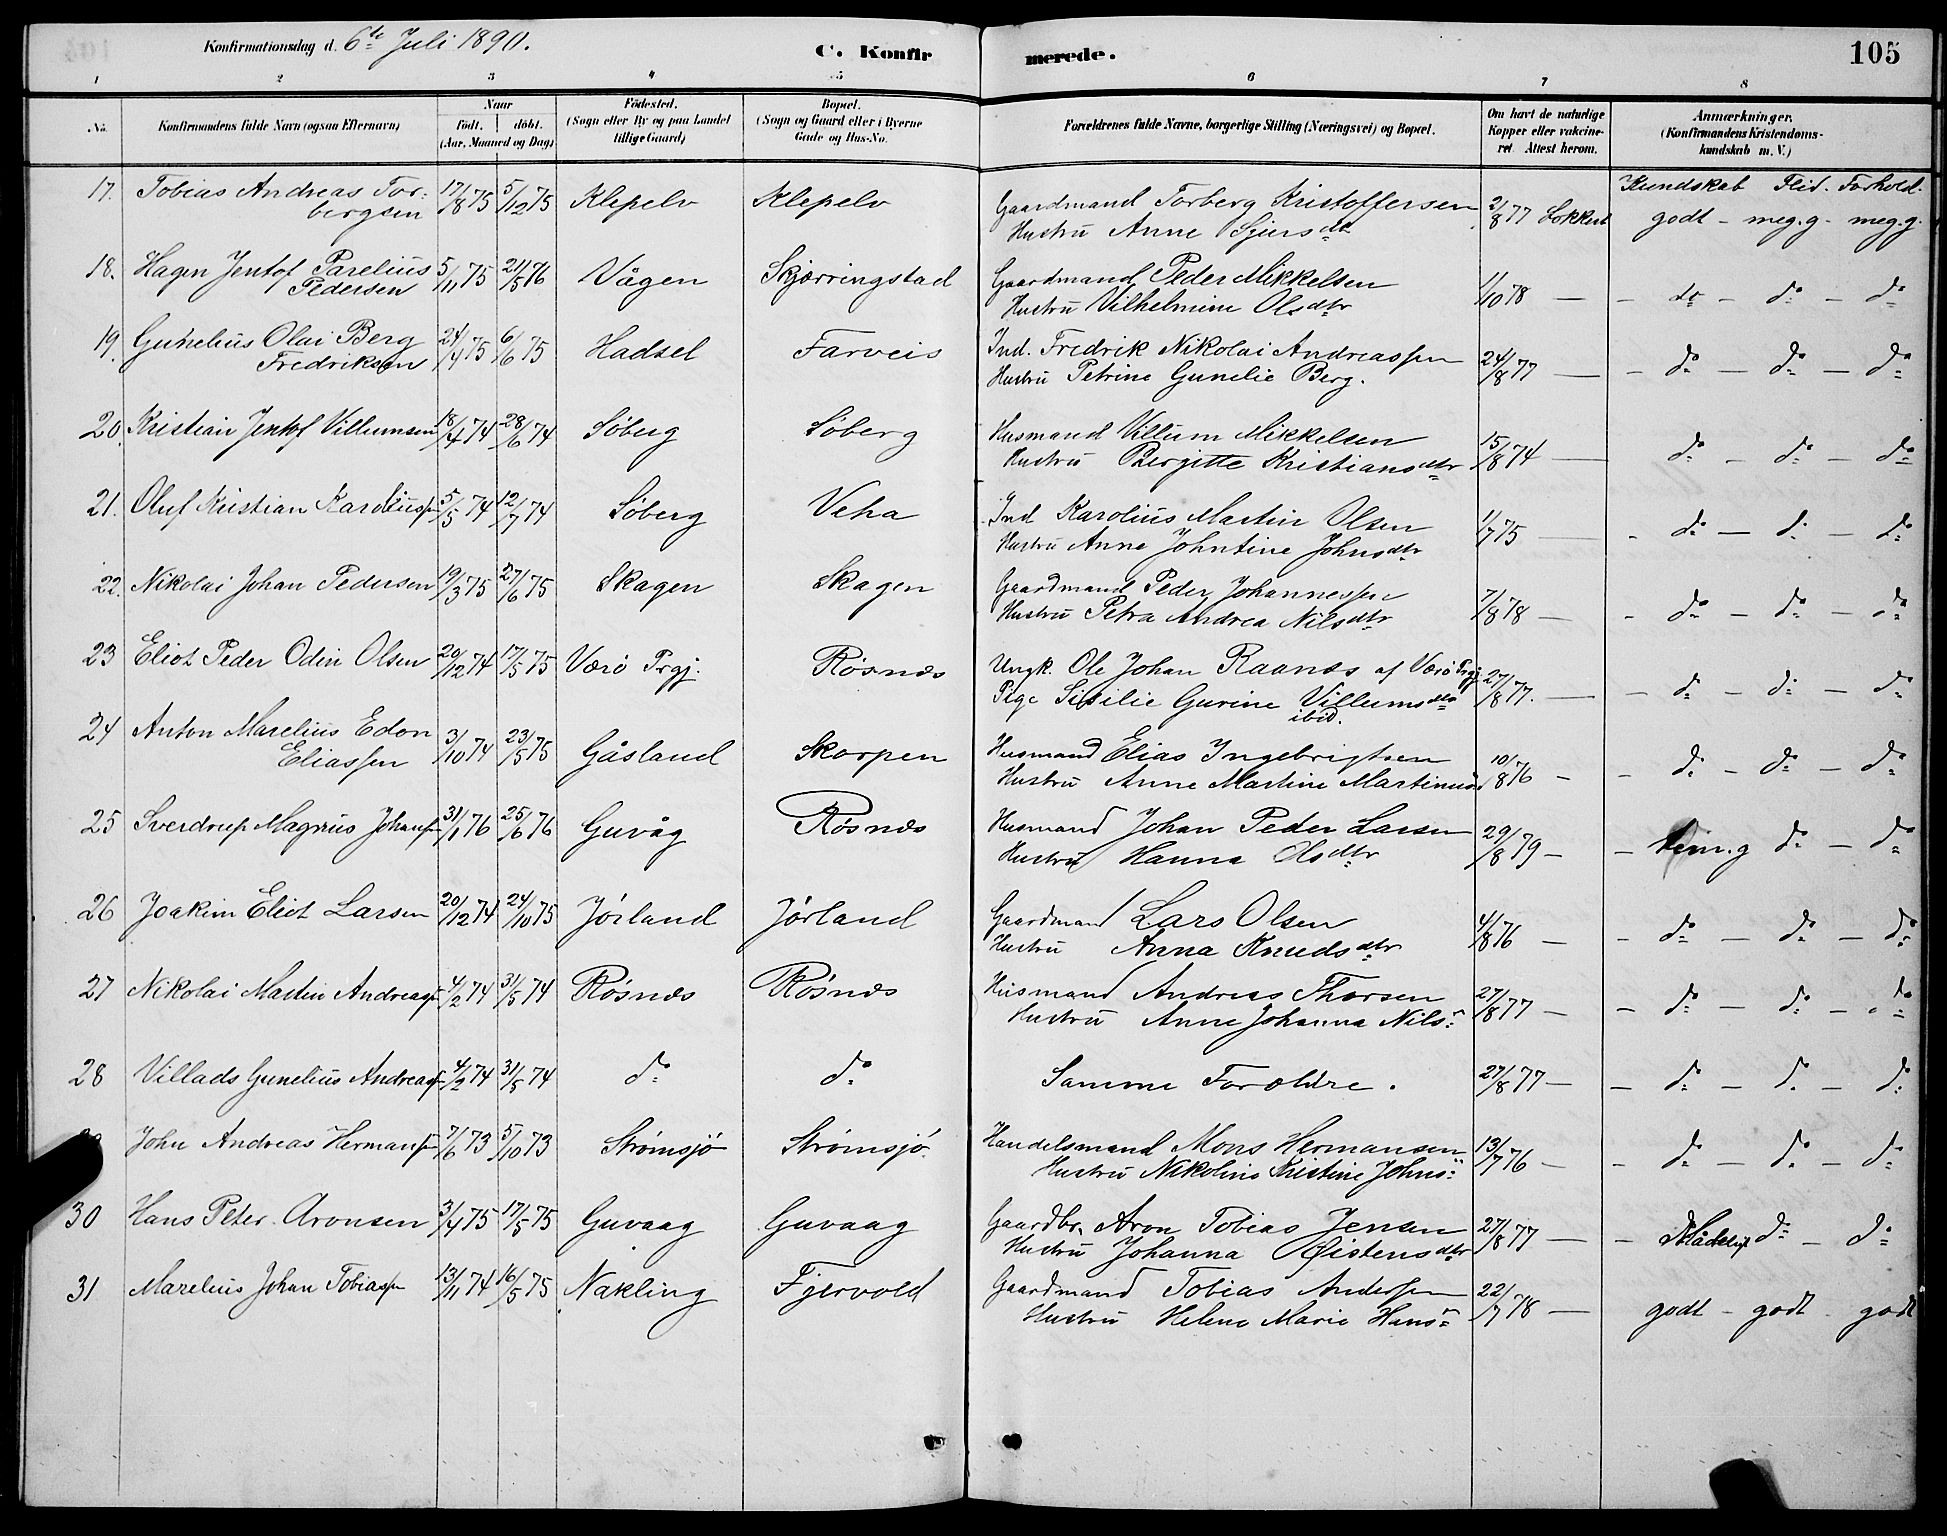 Konfirmationsdag d. 6te Juli 1890. C. Konfirmerede. 105
1 2 3 4 5 6 7 8
No. Konfirmandens fulde Navn (ogsaa Efternavn) Naar født. døbt. (Aar, Maaned og Dag) Fødested. (Sogn eller By og paa Landet tillige Gaard) Bopæl. (Sogn og Gaard eller i Byerne Gade og Hus-No. Forældrenes fulde Navne, borgerlige Stilling (Næringsvei) og Bopæl. Om havt de naturlige Kopper eller vakcineret. Attest herom. Anmærkninger. (Konfirmandens Kristendomskundskab m. V.)
Kundskab Flid. Forhold.
17. Tobias Andreas Tor- 17/8 75 5/12 75 Klepelv Klepelv Gaardmand Torberg Kristoffersen 2/8 77 godt - meg.g - meg.g.
bergsen Hustru Anne
18. Hagen Jentof Parelius 5/11 75 21/5 76 Vågen Skjærringstad Gaardmand Peder Mikkelsen 1/10 78 — - do - do - do
Pedersen Hustru Vilhelmine Olsdtr
19. Gunelius Olai Berg 24/4 75 6/6 75 Hadsel Farveis Ind. Fredrik Nikolai Andreassen 24/8 77 — - do - do - do
Fredriksen Hustru Petrine Gunelie Berg.
20. Kristian Jentof Villumsen 18/4 74 28/6 74 Söberg Söberg Husmand Villum Mikkelsen 15/8 74 — do - do - do
Hustru Bergitte Kristiansdtr
21. Oluf Kristian Karoliuss. 5/5 74 12/7 74 Söberg Veha Ind Karolius Martin Olsen 1/7 75 — - do - do - do
Hustru Anne Johntine Johnsdtr
22. Nikolai Johan Pedersen 19/3 75 27/6 75 Skagen Skagen Gaardmand Peder Johannessen 7/8 78 — - do - do - do
Hustru Petra Andrea Nilsdtr
23 Eliot Peder Odin Olsen 20/12 74 17/5 75 Værö Prgj. Rösnæs Ungk. Ole Johan Raanæs af Værö Prgj. 27/8 77. — - do - do - do
Pige Sisilie Gurine Villumsdtr
ibid.
24 Anton Marelius Edon 3/10 74 23/5 75 Gåsland Skorpen Husmand Elias Ingebrigtsen 10/8 76 - - do - do - do
Eliassen Hustru Anne Martine Martinus
25 Sverdrup Magnus Johans. 31/1 76 25/6 76 Guvåg Rösnæs Husmand Johan Peder Larsen 29/8 79 - - m.g do - do
Hustru Hanna Olsdtr
26 Joakim Eliot Larsen 20/12 74 24/10 75 Jörland Jörland Gaardmand Lars Olsen 4/8 76 - - do - do - do
Hustru Anna Knudsdtr
27 Nikolai Martin Andreass. 4/2 74 31/5 74 Rösnæs Rösnæs Husmand Andreas Thorsen 27/8 77 - - do - do - do
Hustru Anne Johanna Nils"
28 Villads Gunelius Andreass. 4/2 74 31/5 74 do do Samme Forældre. 27/8 77 - - do - do - do
John Andreas Hermans. 7/6 73 5/10 73 Strömsjö Strömsjö Handelsmand Mons Hermansen 13/7 76 - - do - do - do
Hustru Nikoline Kristine Johns"
30 Hans Peter Aronsen 3/4 75 17/5 75 Guvaag Guvaag Gaardbr. Aron Tobias Jensen 27/8 77 — - do - do
Hustru Johanna Øistensdtr
31 Marelius Johan Tobiass. 13/11 74 16/5 75 Nakling Fjervold Gaardmand Tobias Andersen 22/7 78 — godt - godt - godt
Hustru Helene Marie Hans"